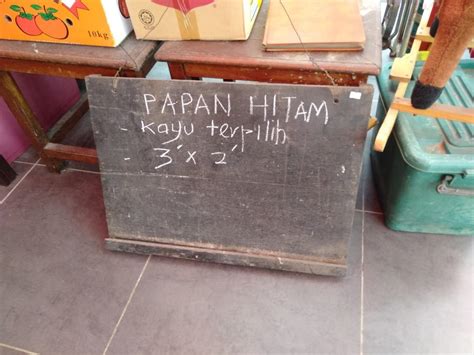 PAPAN HITAM
- Kayu terpilih
- 3' x 2'
10kg